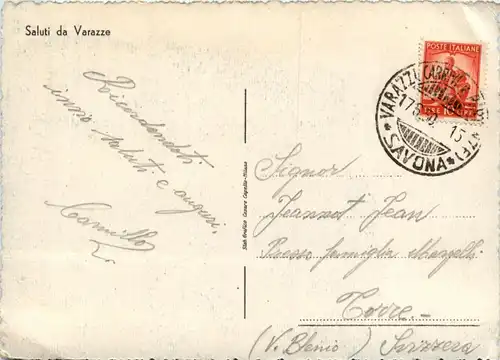 Saluti da Varazze
Ricordandoti
invio saluti e auguri.
Camillo
Stab. Grafico Cesare Capello-Milano
POSTE ITALIANE
VARAZZE
SAVONA
Signor
Jeannot Jean
Presso famiglia
Torre.-
(V. Blenio) Svizzera